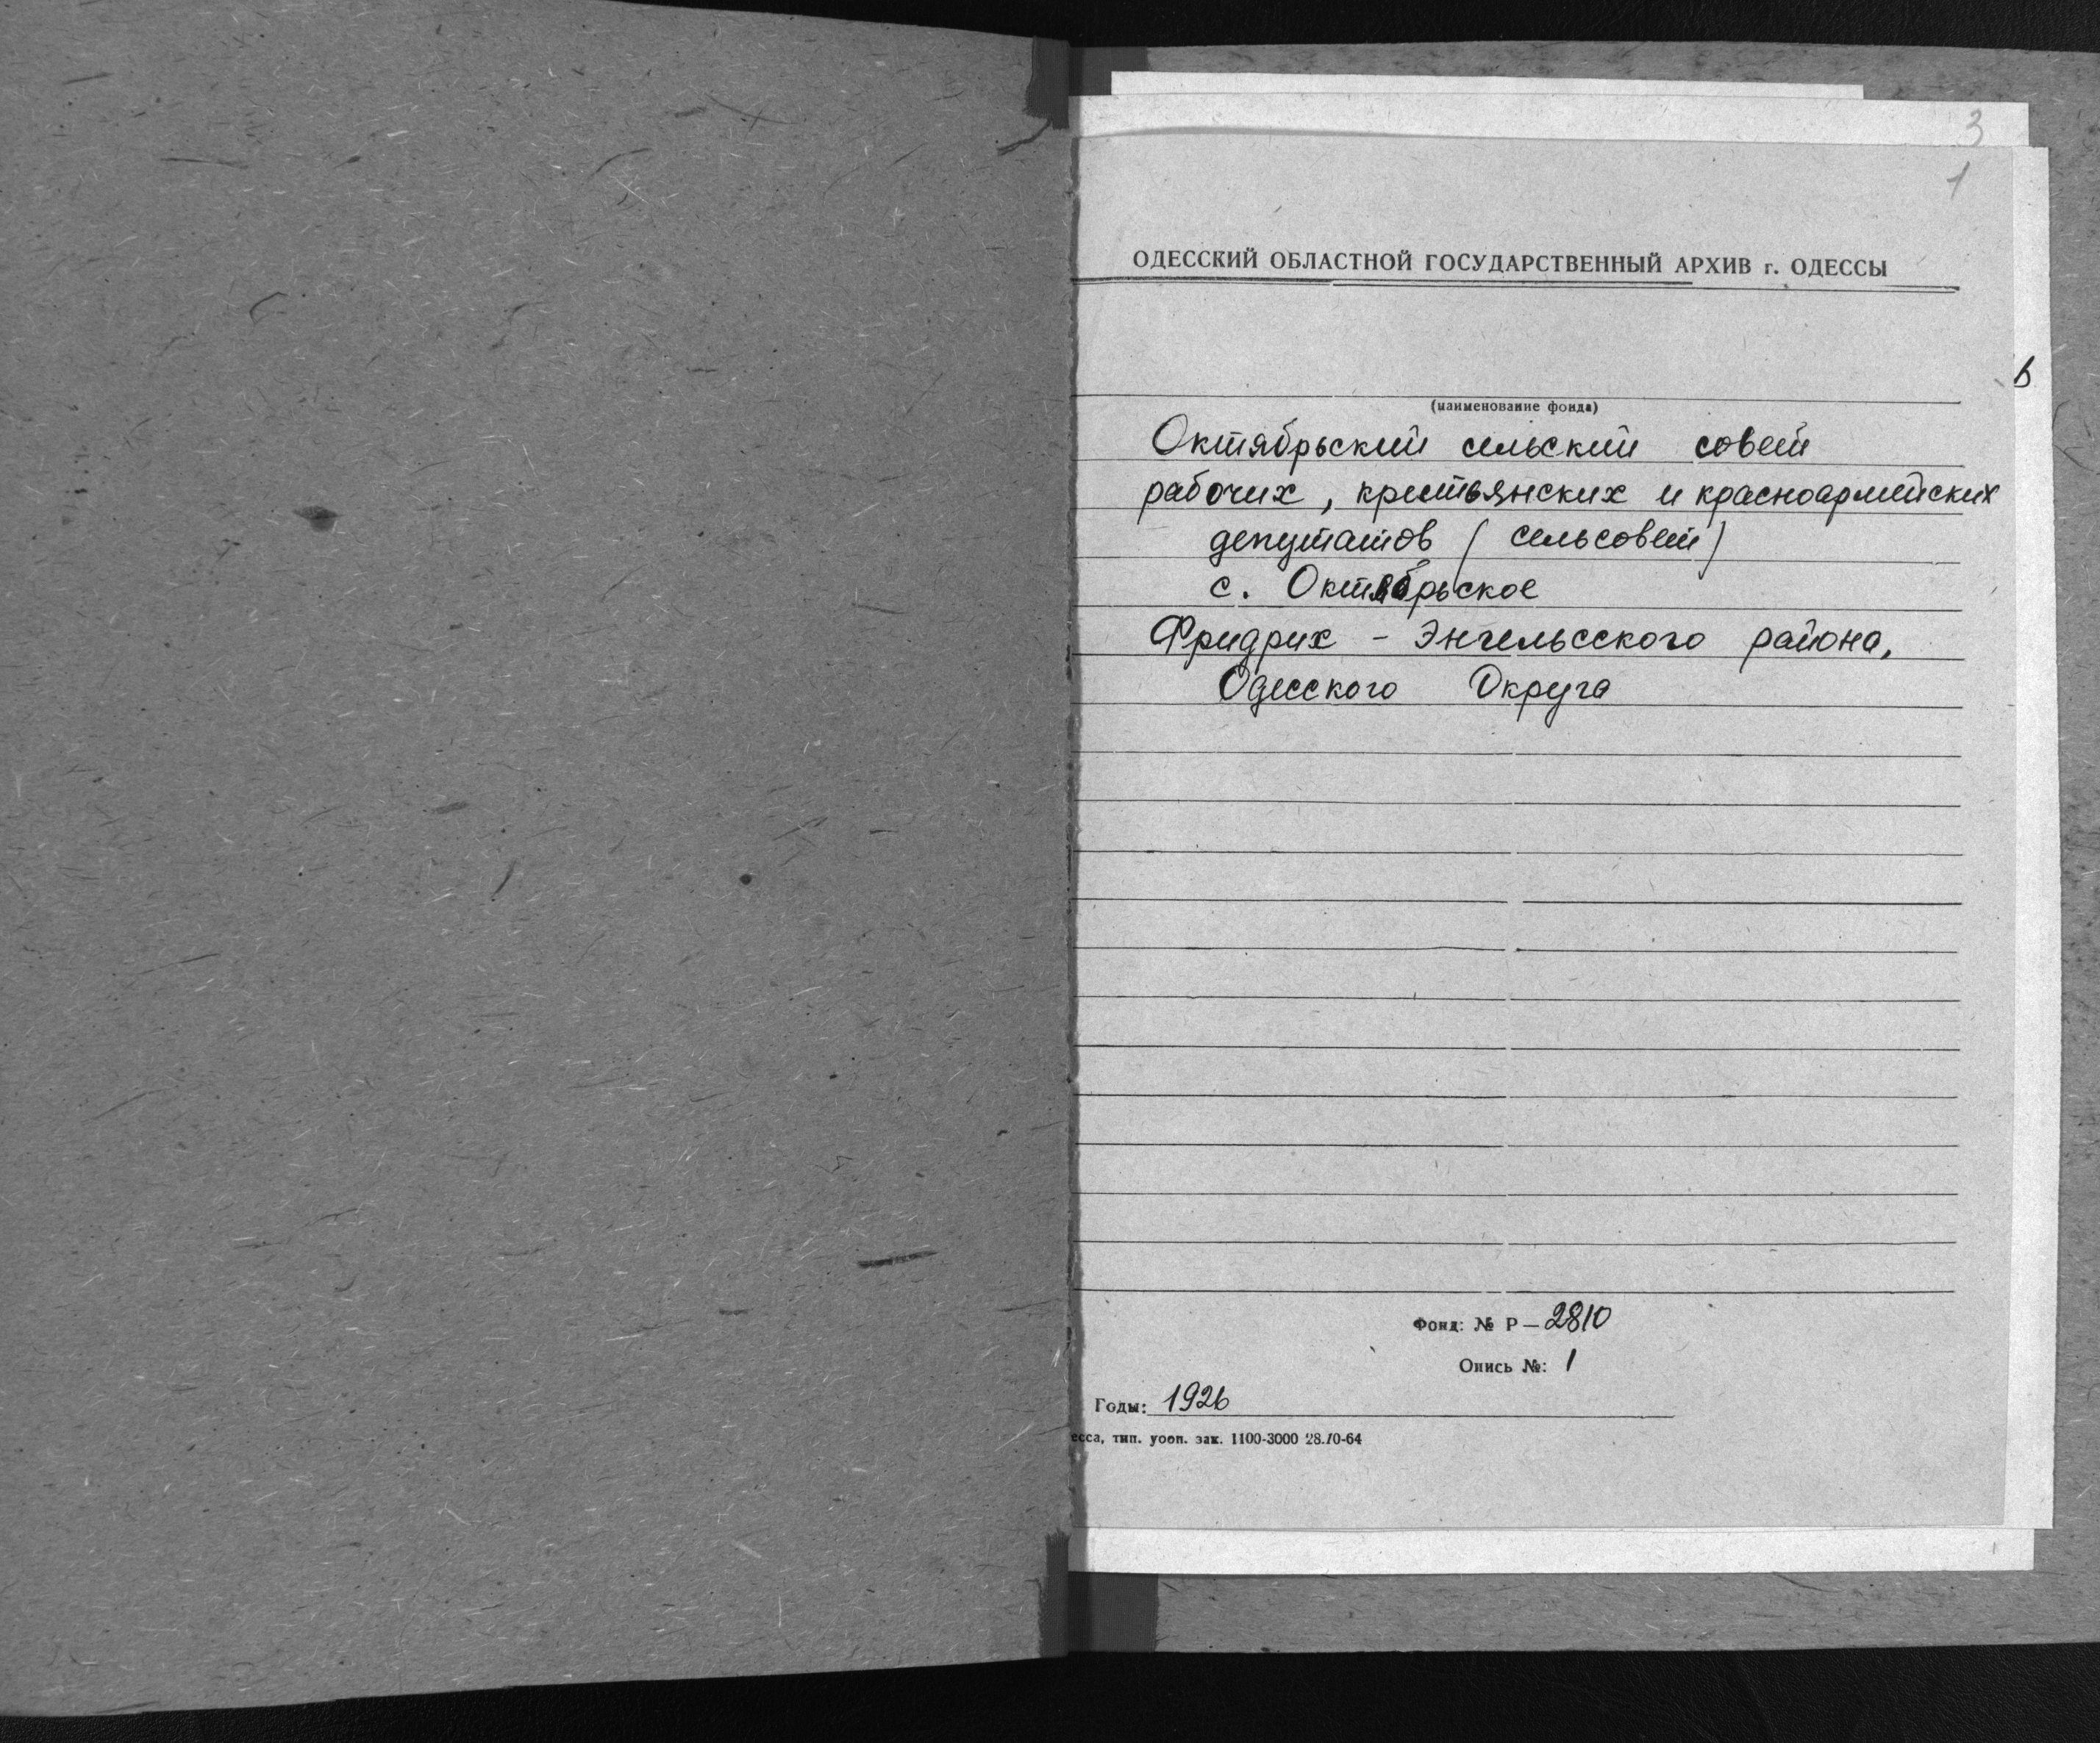 3
1
ОДЕССКИЙ ОБЛАСТНОЙ ГОСУДАРСТВЕННЫЙ АРХИВ г. ОДЕССЫ
(наименование фонда)
Октябрьский сельский совет
рабочих, крестьянских и красноармейских
депутатов (сельсовет)
с. Октябрьское
Фридрих - Энгельсского района,
Одесского Округа
Фонд: № Р — 2810
Опись №: 1
Годы: 1926
есса, тип. уооп. зак. 1100-3000 28.10-64